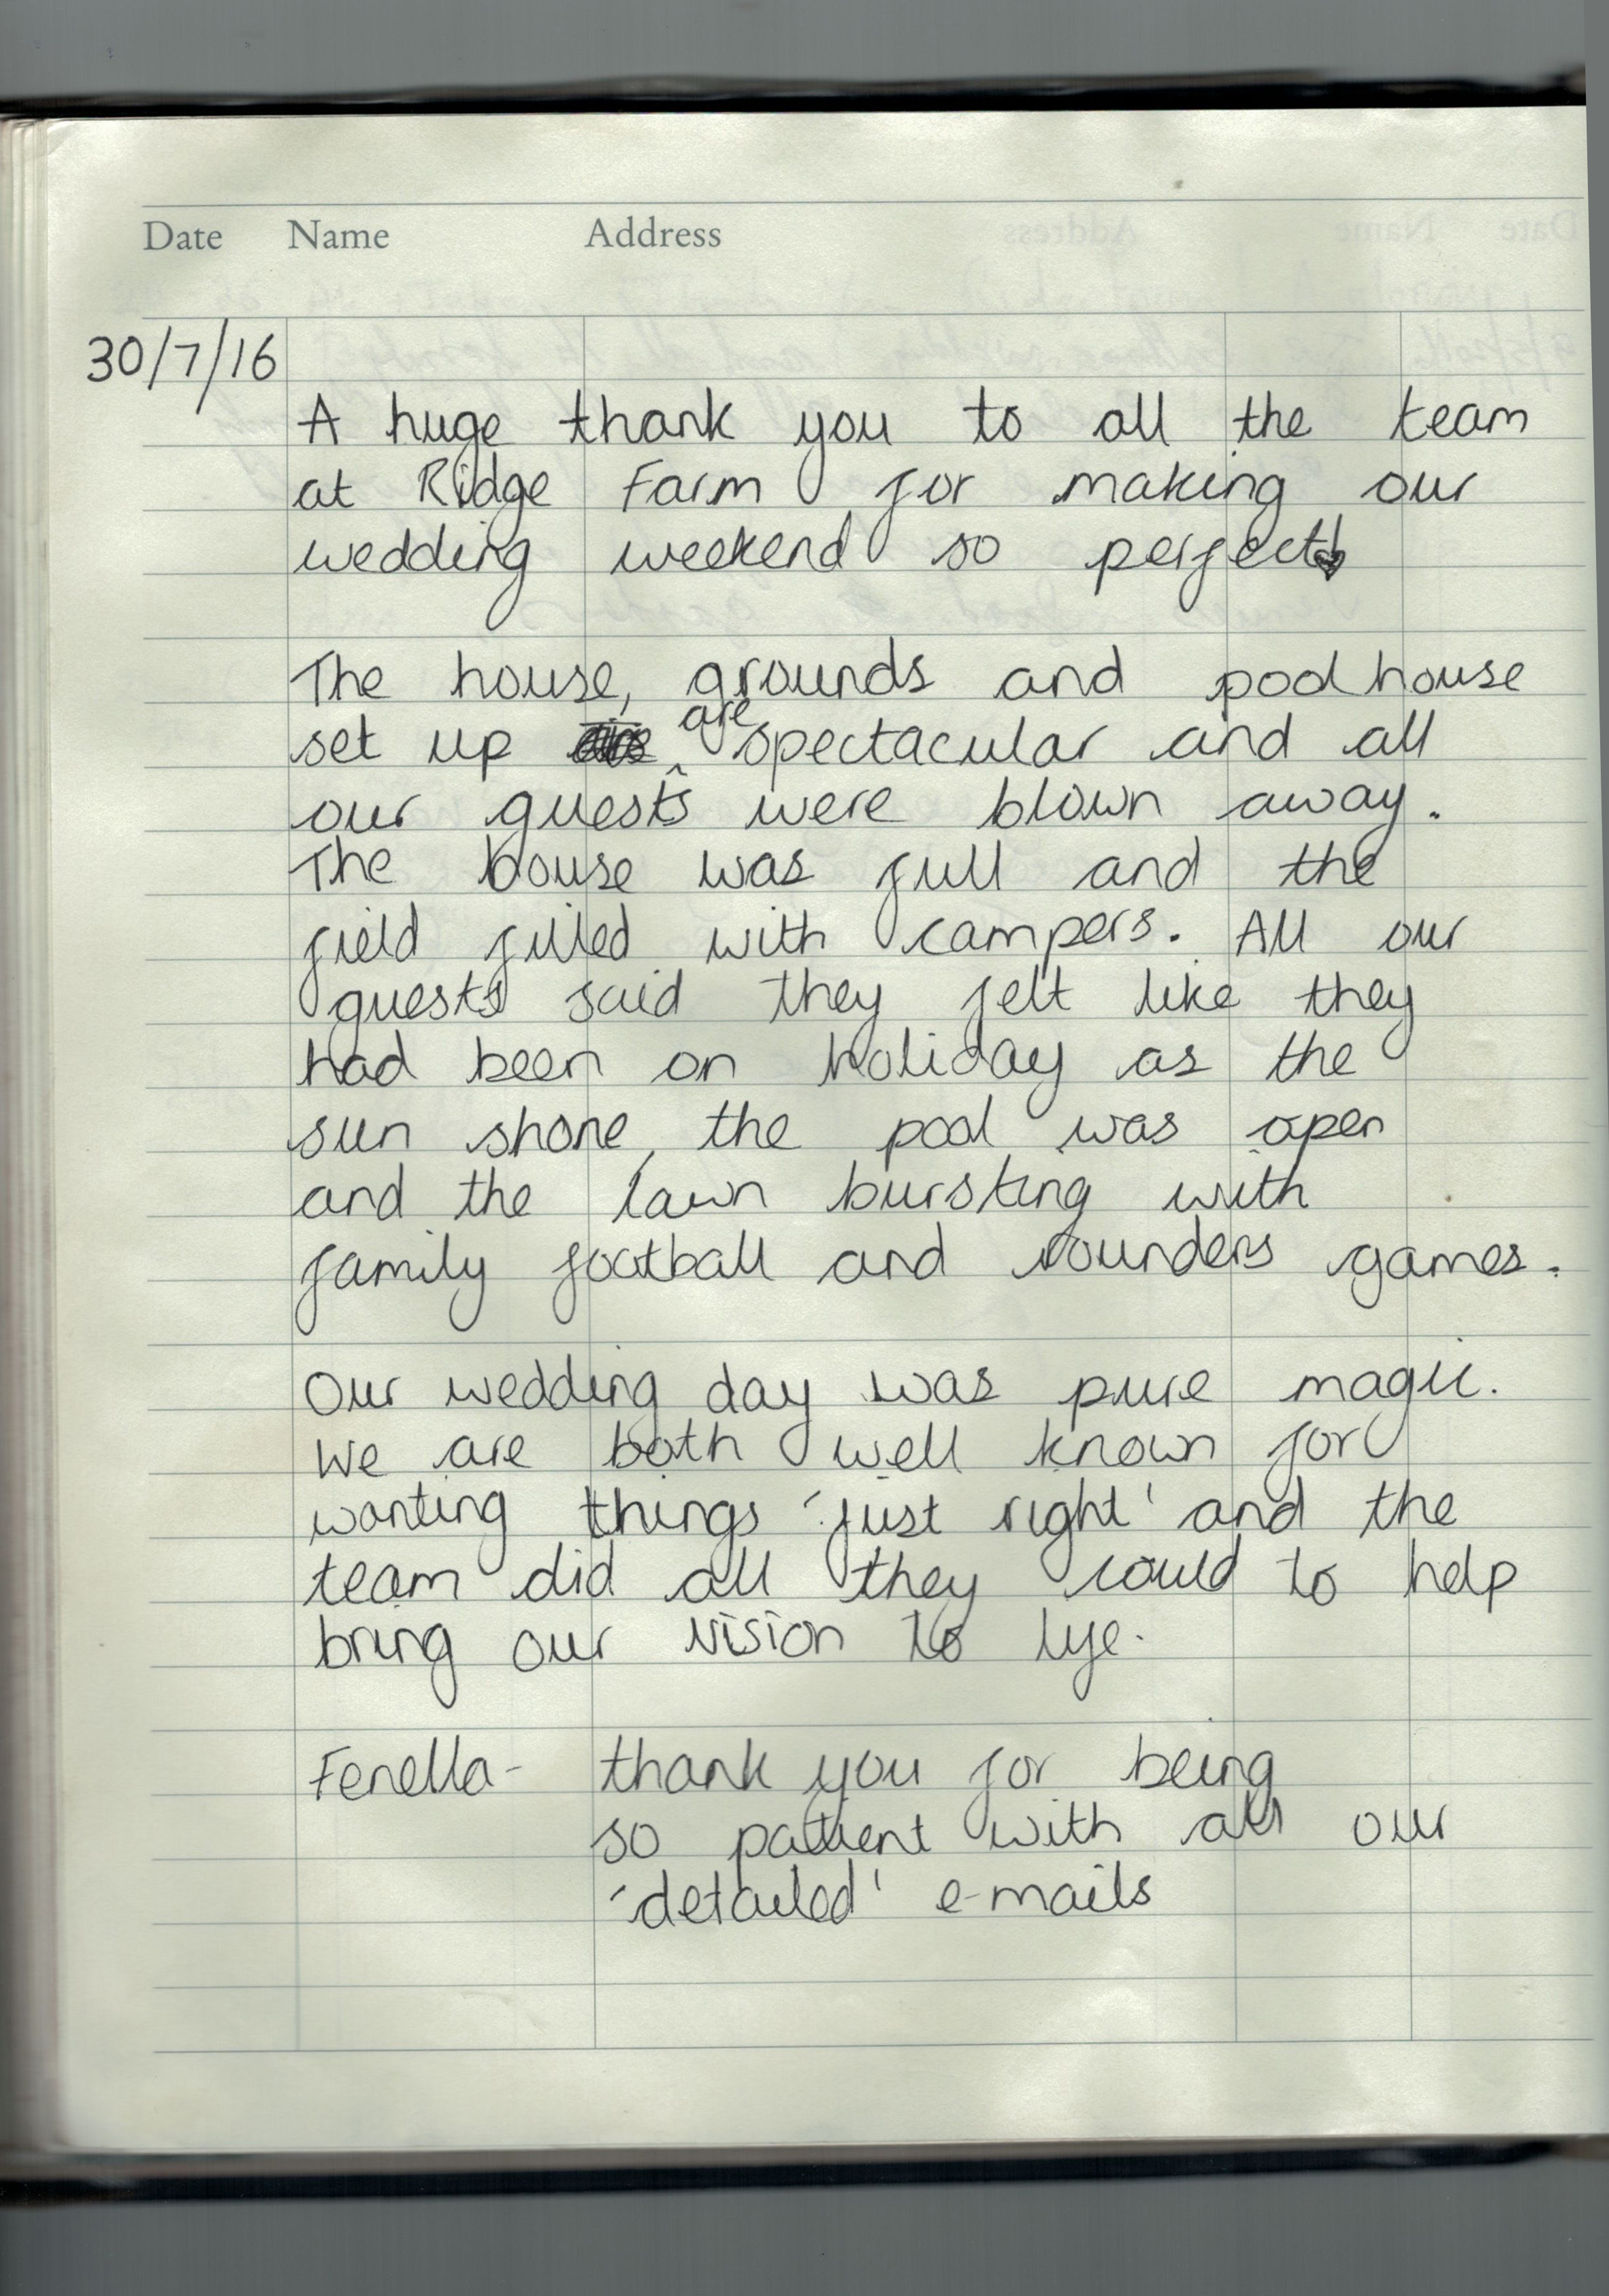 Date Name Address
30/7/16
A huge thank you to all the team
at Ridge Farm for making our
wedding weekend so perfect!
The house, grounds and pool house
set up are spectacular and all
our guests were blown away.
The house was full and the
field filled with campers. All our
guests said they felt like they
had been on holiday as the
sun shone, the pool was open
and the lawn bursting with
family football and rounders games.
Our wedding day was pure magic.
We are both well known for
wanting things 'just right' and the
team did all they could to help
bring our vision to life.
Fenella - thank you for being
so patient with all our
'detailed' e-mails